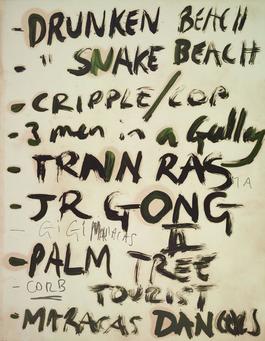 - DRUNKEN BEACH
- " SNAKE BEACH
- CRIPPLE/COP
- 3 men in a Galley
- TRAIN RASTA
- JR GONG
- GIGI MARACAS II
- PALM TREE
- CORB TOURIST
- MARACAS DANCALS